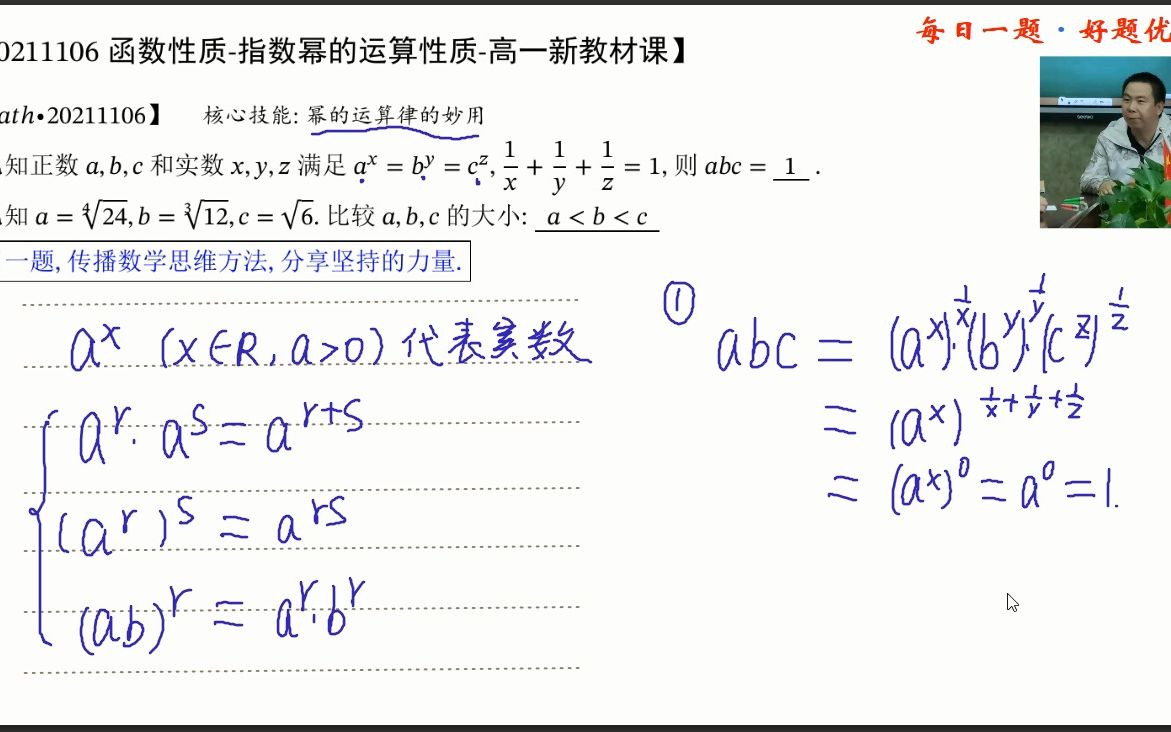 每日一题·好题优
0211106 函数性质-指数幂的运算性质-高一新教材课】
ath•20211106】 核心技能: 幂的运算律的妙用
知正数 a, b, c 和实数 x, y, z 满足 a^x = b^y = c^z, 1/x + 1/y + 1/z = 1, 则 abc = 1 .
知 a = ∜24, b = ∛12, c = √6. 比较 a, b, c 的大小: a < b < c
一题, 传播数学思维方法, 分享坚持的力量.
a^x (x∈R, a>0) 代表实数
a^r · a^s = a^{r+s}
(a^r)^s = a^{rs}
(ab)^r = a^r · b^r
① abc = (a^x)^{1/x} · (b^y)^{1/y} · (c^z)^{1/z}
= (a^x)^{1/x + 1/y + 1/z}
= (a^x)^0 = a^0 = 1.